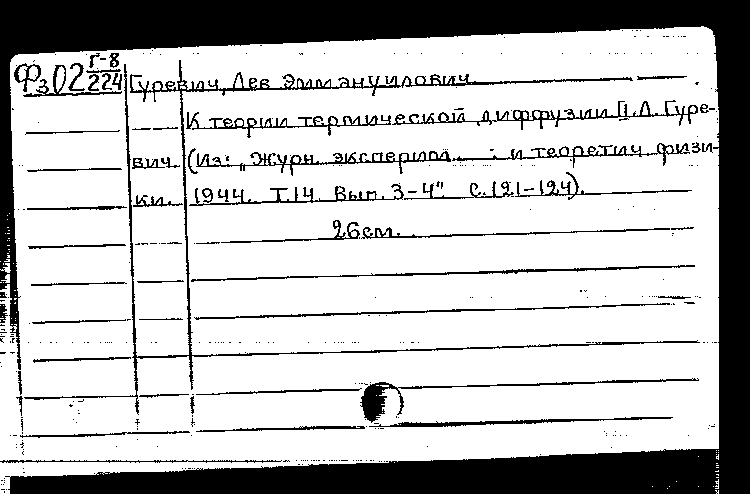 Фз 02 Г-8/224
Гуревич, Лев Эммануилович.
К теории термической диффузии. II. Л. Гуре-
вич. (Из: „Журн. эксперим. : и теоретич. физи-
ки. 1944. Т.14. Вып. 3-4". С. 121-124).
26см.